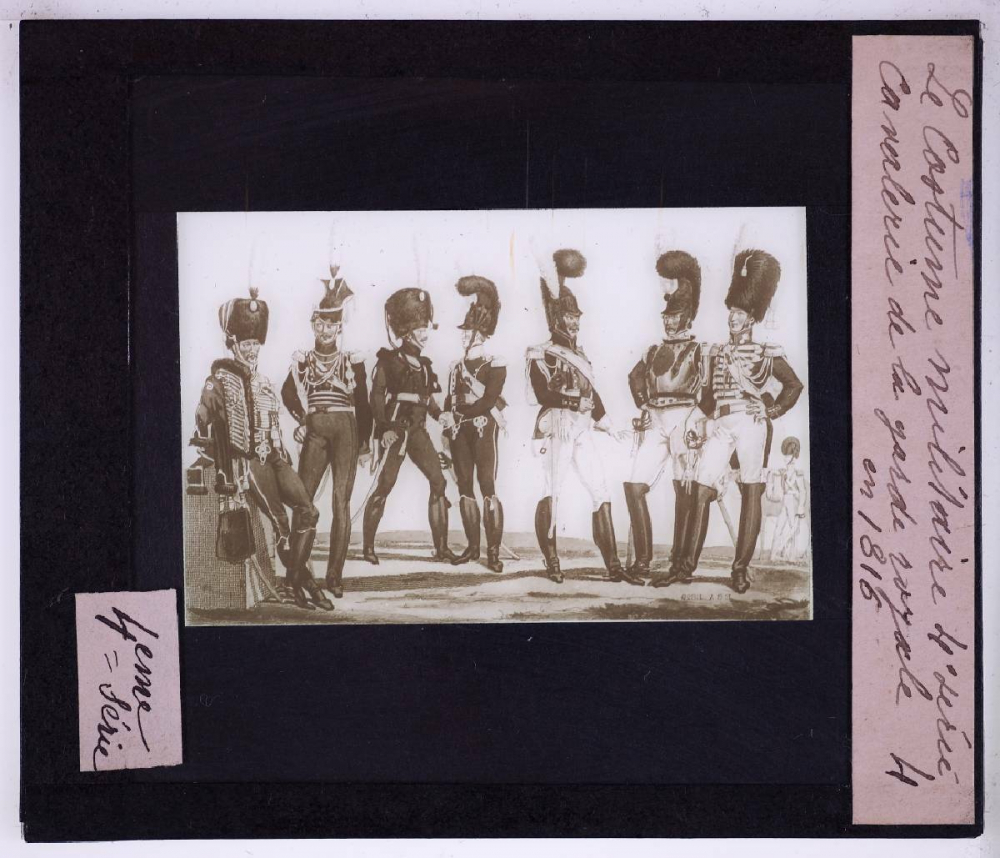 Le Costume militaire 4e série
Cavalerie de la garde royale 4
en 1816
4eme
= Série